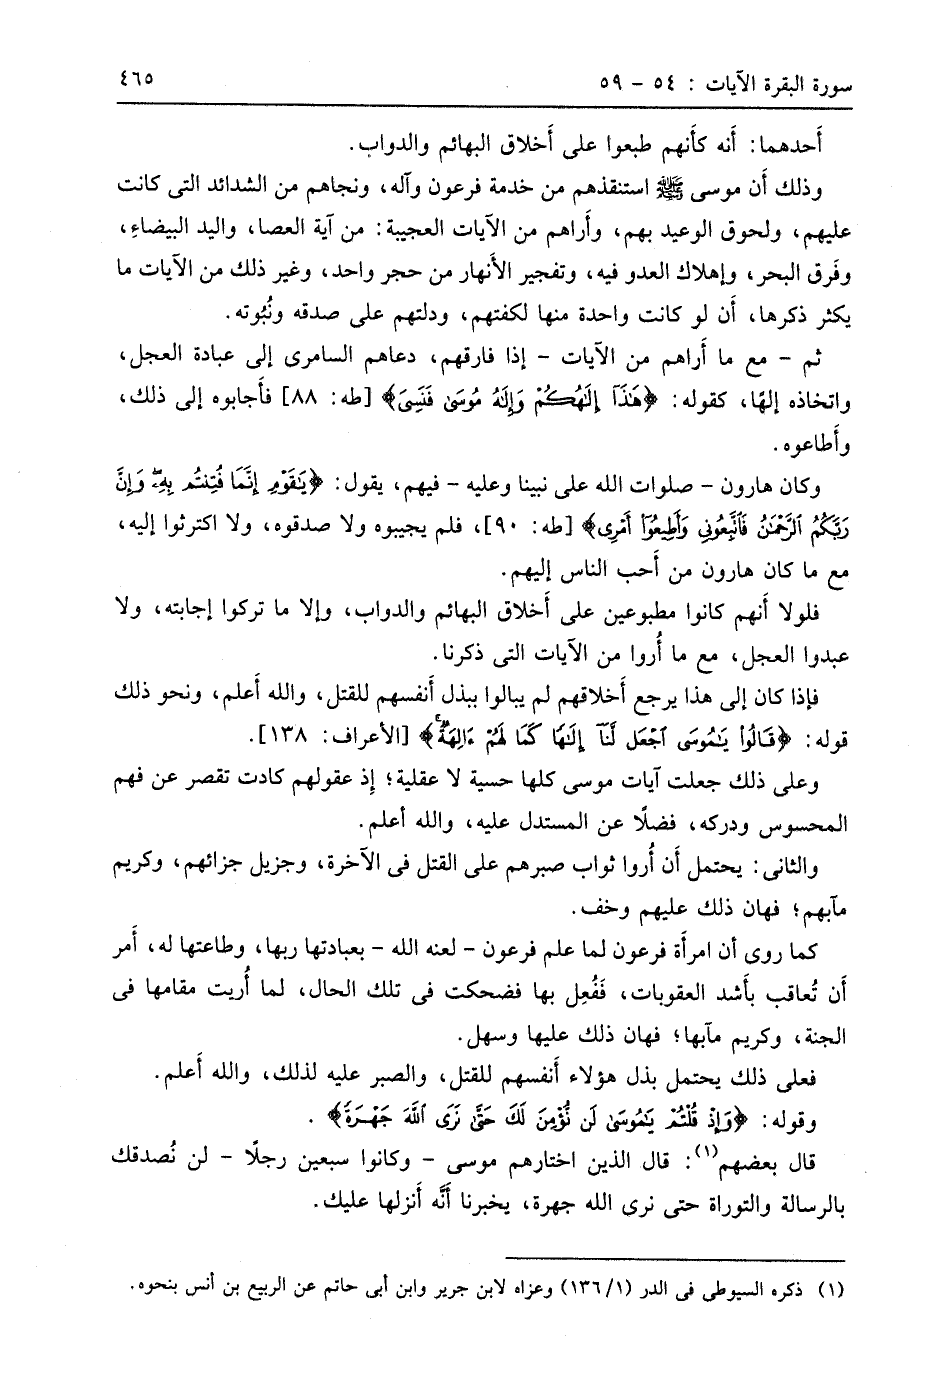 سورة البقرة الآيات : ٥٤ - ٥٩ ٤٦٥
أَحدهما: أَنه كأَنهم طبعوا على أَخلاق البهائم والدواب.
وذلك أَن موسى ﷺ استنقذهم من خدمة فرعون وآله، ونجاهم من الشدائد التى كانت
عليهم، ولحوق الوعيد بهم، وأَراهم من الآيات العجيبة: من آية العصا، واليد البيضاءِ،
وفَرق البحر، وإهلاك العدو فيه، وتفجير الأَنهار من حجر واحد، وغير ذلك من الآيات ما
يكثر ذكرها، أَن لو كانت واحدة منها لكفتهم، ودلتهم على صدقه ونُبُوته.
ثم - مع ما أَراهم من الآيات - إذا فارقهم، دعاهم السامرى إلى عبادة العجل،
واتخاذه إلهًا، كقوله: ﴿هَٰذَآ إِلَٰهُكُمْ وَإِلَٰهُ مُوسَىٰ فَنَسِىَ﴾ [طه: ٨٨] فأَجابوه إلى ذلك،
وأَطاعوه.
وكان هارون - صلوات الله على نبينا وعليه - فيهم، يقول: ﴿يَٰقَوْمِ إِنَّمَا فُتِنتُم بِهِۦۖ وَإِنَّ
رَبَّكُمُ ٱلرَّحْمَٰنُ فَٱتَّبِعُونِى وَأَطِيعُوٓا۟ أَمْرِى﴾ [طه: ٩٠]، فلم يجيبوه ولا صدقوه، ولا اكترثوا إليه،
مع ما كان هارون من أَحب الناس إليهم.
فلولا أَنهم كانوا مطبوعين على أَخلاق البهائم والدواب، وإلا ما تركوا إجابته، ولا
عبدوا العجل، مع ما أُروا من الآيات التى ذكرنا.
فإذا كان إلى هذا يرجع أَخلاقهم لم يبالوا ببذل أَنفسهم للقتل، والله أَعلم، ونحو ذلك
قوله: ﴿قَالُوا۟ يَٰمُوسَى ٱجْعَل لَّنَآ إِلَٰهًا كَمَا لَهُمْ ءَالِهَةٌۚ﴾ [الأَعراف: ١٣٨].
وعلى ذلك جعلت آيات موسى كلها حسية لا عقلية؛ إذ عقولهم كادت تقصر عن فهم
المحسوس ودركه، فضلًا عن المستدل عليه، والله أعلم.
والثانى: يحتمل أَن أُروا ثواب صبرهم على القتل فى الآخرة، وجزيل جزائهم، وكريم
مآبهم؛ فهان ذلك عليهم وخف.
كما روى أن امرأَة فرعون لما علم فرعون - لعنه الله - بعبادتها ربها، وطاعتها له، أَمر
أَن تُعاقب بأَشد العقوبات، فَفُعِل بها فضحكت فى تلك الحال، لما أُريت مقامها فى
الجنة، وكريم مآبها؛ فهان ذلك عليها وسهل.
فعلى ذلك يحتمل بذل هؤلاء أَنفسهم للقتل، والصبر عليه لذلك، والله أَعلم.
وقوله: ﴿وَإِذْ قُلْتُمْ يَٰمُوسَىٰ لَن نُّؤْمِنَ لَكَ حَتَّىٰ نَرَى ٱللَّهَ جَهْرَةً﴾ .
قال بعضهم(١): قال الذين اختارهم موسى - وكانوا سبعين رجلًا - لن نُصدقك
بالرسالة والتوراة حتى نرى الله جهرة، يخبرنا أَنَّه أَنزلها عليك.
(١) ذكره السيوطى فى الدر (١/ ١٣٦) وعزاه لابن جرير وابن أبى حاتم عن الربيع بن أنس بنحوه.